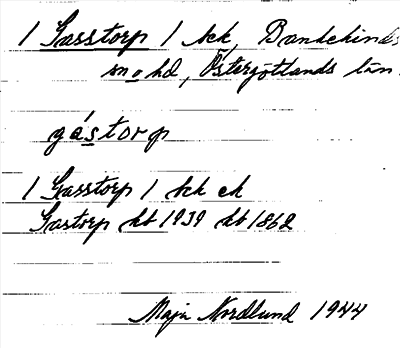 1 Gasstorp 1 hck, Bankekinds
sn o hd, Östergötlands län.
gástorp
1 Gasstorp 1 hck ck
Gastorp hb 1939 hb 1862
Maja Nordlund 1944